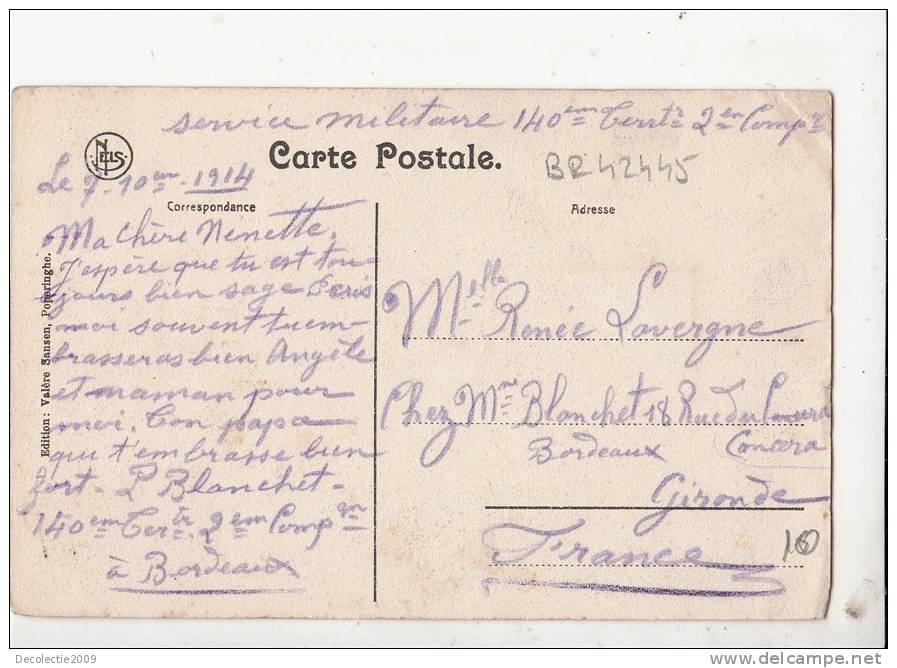 service militaire 140em Terrtr 2em Compe
NELS
Carte Postale.
BR42445
Le 7-10em-1914
Correspondance
Adresse
Ma Chère Nenette,
J'espère que tu est tou-
jours bien sage Ecris
moi souvent tu em-
brasseras bien Angèle
et maman pour
moi. Ton papa
qui t'embrasse bien
fort - P Blanchet -
140em Terrtr. 2em Comp
à Bordeaux
Edition : Valère Sansen, Poperinghe.
Melle Renée Lavergne
Chez Mme Blanchet 18 Rue du
Bordeaux
Gironde
France
160
Decolectie2009
delcampe.net